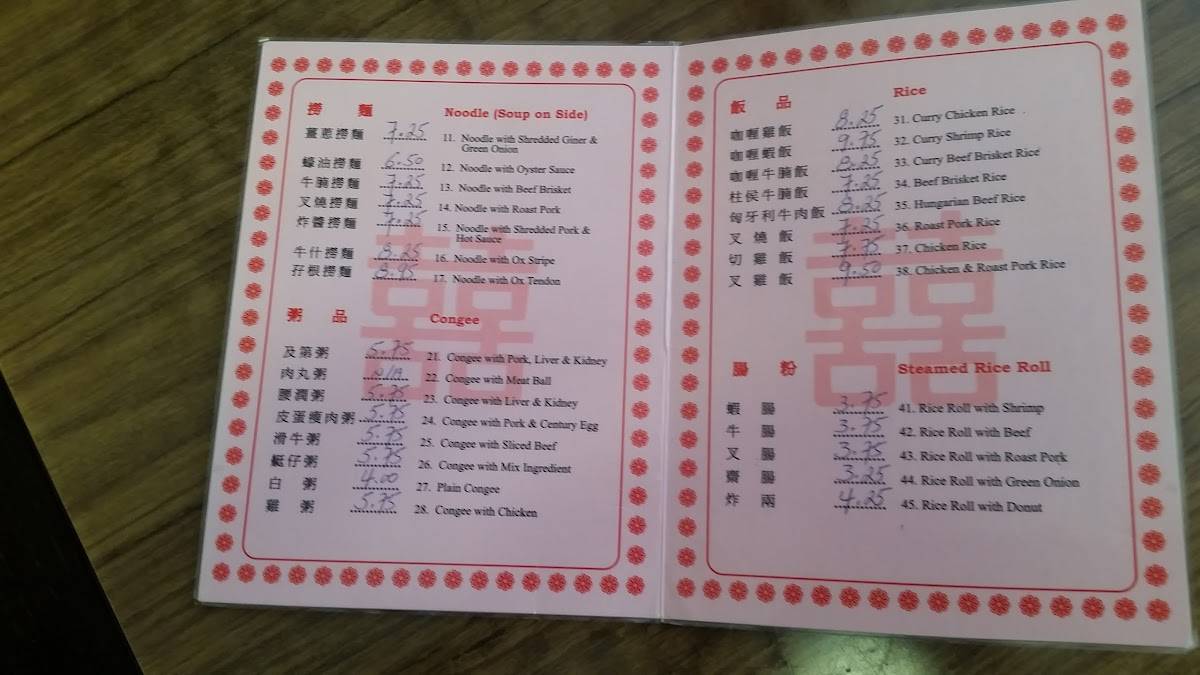 撈 麵 Noodle (Soup on Side)
薑蔥撈麵 7.25 11. Noodle with Shredded Giner &
Green Onion
蠔油撈麵 6.50 12. Noodle with Oyster Sauce
牛腩撈麵 7.25 13. Noodle with Beef Brisket
叉燒撈麵 7.25 14. Noodle with Roast Pork
炸醬撈麵 7.25 15. Noodle with Shredded Pork &
Hot Sauce
牛什撈麵 8.25 16. Noodle with Ox Stripe
孖根撈麵 8.95 17. Noodle with Ox Tendon
粥 品 Congee
及第粥 5.75 21. Congee with Pork, Liver & Kidney
肉丸粥 N/A 22. Congee with Meat Ball
腰潤粥 5.75 23. Congee with Liver & Kidney
皮蛋瘦肉粥 5.75 24. Congee with Pork & Century Egg
滑牛粥 5.75 25. Congee with Sliced Beef
艇仔粥 5.75 26. Congee with Mix Ingredient
白 粥 4.00 27. Plain Congee
雞 粥 5.75 28. Congee with Chicken
飯 品 Rice
咖喱雞飯 8.25 31. Curry Chicken Rice
咖喱蝦飯 9.75 32. Curry Shrimp Rice
咖喱牛腩飯 8.25 33. Curry Beef Brisket Rice
柱侯牛腩飯 7.25 34. Beef Brisket Rice
匈牙利牛肉飯 8.25 35. Hungarian Beef Rice
叉 燒 飯 7.25 36. Roast Pork Rice
切 雞 飯 7.75 37. Chicken Rice
叉 雞 飯 9.50 38. Chicken & Roast Pork Rice
腸 粉 Steamed Rice Roll
蝦 腸 3.75 41. Rice Roll with Shrimp
牛 腸 3.75 42. Rice Roll with Beef
叉 腸 3.75 43. Rice Roll with Roast Pork
齋 腸 3.25 44. Rice Roll with Green Onion
炸 兩 4.25 45. Rice Roll with Donut